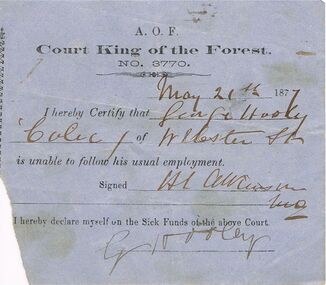 A. O. F.
Court King of the Forest.
NO. 3770.
May 21th 1877
I hereby Certify that George Hooley
of Webster St
is unable to follow his usual employment.
Signed H L Atkinson
I hereby declare myself on the Sick Funds of the above Court.
G Hooley